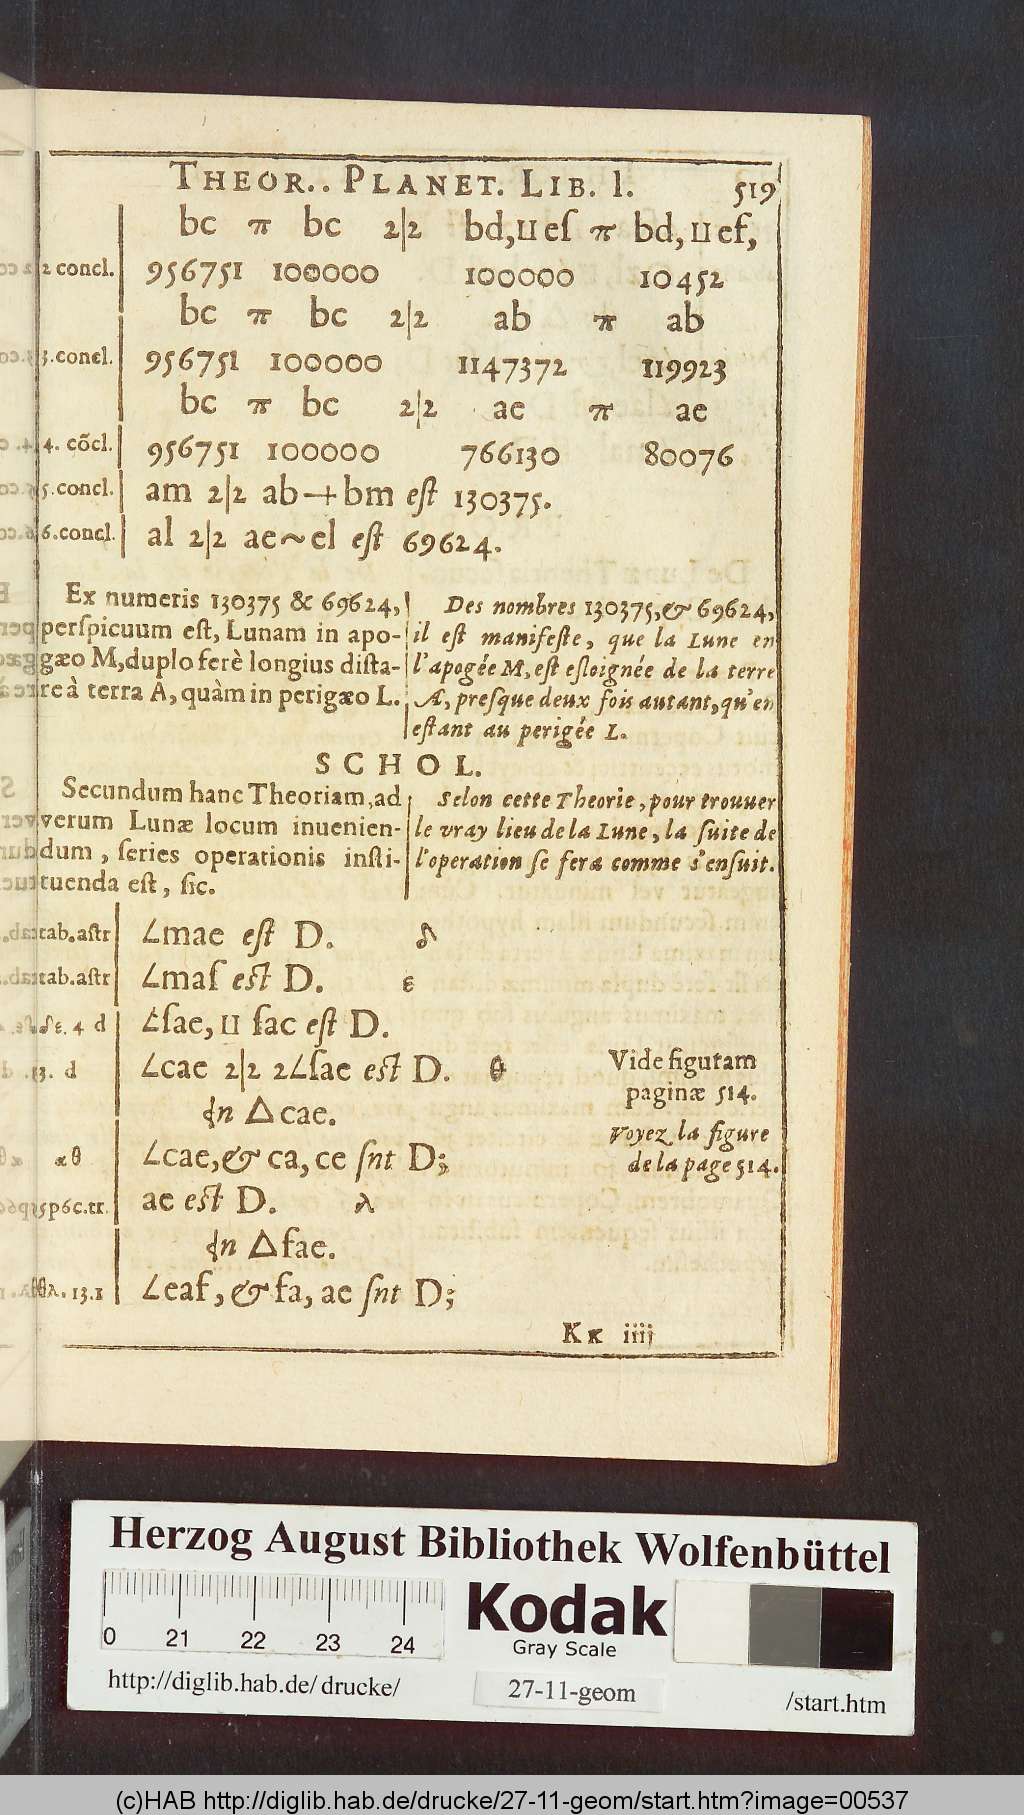 THEOR.. PLANET. LIB. I. 519
bc π bc 2|2 bd,⊔eſ π bd,⊔ef,
2 concl. 956751 100000 100000 10452
bc π bc 2|2 ab π ab
3.concl. 956751 100000 1147372 119923
bc π bc 2|2 ae π ae
4. cõcl. 956751 100000 766130 80076
5.concl. am 2|2 ab+bm eſt 130375.
6.concl. al 2|2 ae~el eſt 69624.
Ex numeris 130375 & 69624,
perſpicuum eſt, Lunam in apo-
gæo M,duplo ferè longius diſta-
re à terra A, quàm in perigæo L.
Des nombres 130375,& 69624,
il eſt manifeſte, que la Lune en
l'apogée M, eſt eſloignée de la terre
A, preſque deux fois autant, qu'en
eſtant au perigée L.
SCHOL.
Secundum hanc Theoriam, ad
verum Lunæ locum inuenien-
dum, ſeries operationis inſti-
tuenda eſt, ſic.
Selon cette Theorie, pour trouuer
le vray lieu de la Lune, la ſuite de
l'operation ſe fera comme s'enſuit.
tab.aſtr ∠mae eſt D. δ
tab.aſtr ∠maſ eſt D. ε
δε. 4 d ∠ſae, ⊔ ſac eſt D.
13. d ∠cae 2|2 2∠ſae eſt D. θ
In △cae.
αθ ∠cae,& ca, ce ſnt D;
15p6c.tr. ae eſt D. λ
In △fae.
θλ. 13.1 ∠eaf, & fa, ae ſnt D;
Vide figutam
paginæ 514.
Voyez la figure
de la page 514.
Kk iiij
Herzog August Bibliothek Wolfenbüttel
0 21 22 23 24
Kodak
Gray Scale
http://diglib.hab.de/ drucke/ 27-11-geom /start.htm
(c)HAB http://diglib.hab.de/drucke/27-11-geom/start.htm?image=00537